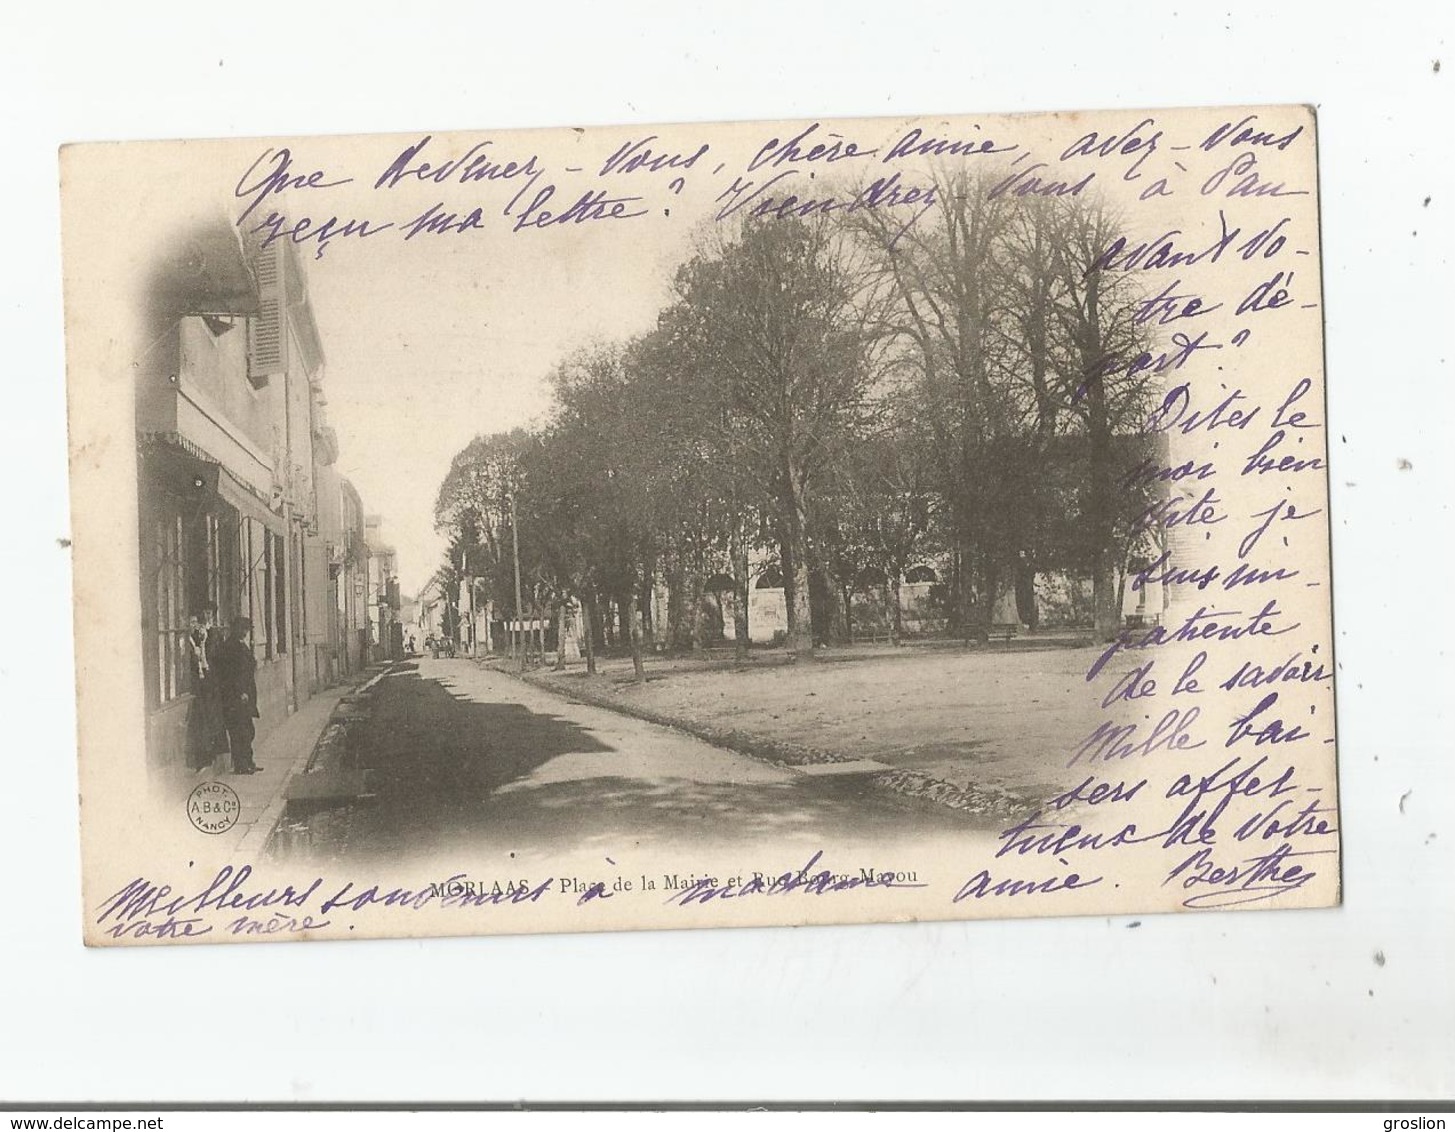 Que devenez-vous, chère amie, avez-vous
reçu ma lettre? Viendrez-vous à Pau
avant vo-
tre dé-
part?
Dites le
moi bien
vite je
suis im-
patiente
de le savoir
Mille bai-
sers affec-
tueux de votre
amie. Berthe
Meilleurs souvenirs à madame
votre mère.
MORLAAS - Place de la Mairie et Rue Bourg-Mayou
PHOT.
A.B & Cie
NANCY
groslion